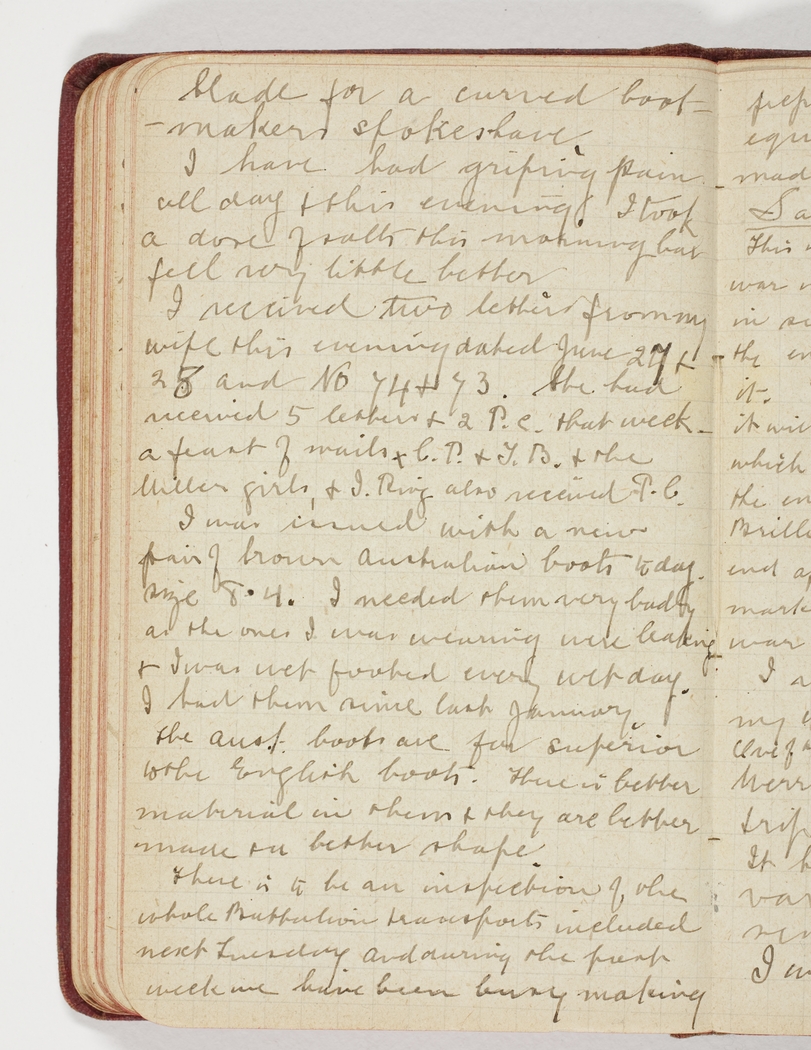 blade for a curved boot-
-makers spokeshave
I have had griping pain
all day & this evening. I took
a dose of salts this morning but
feel very little better
I received two letters from my
wife this evening dated June 27 &
28 and No 74 & 73. She had
received 5 letters & 2 P.C. that week -
a feast of mails & C.P. & T.B. & the
Miller girls, & I. Ring also received P.C.
I was issued with a new
pair of brown Australian boots to day.
size 8.4. I needed them very badly
as the ones I was wearing were leaking
& I was wet footed every wet day.
I had them since last January.
The Aust. boots are far superior
to the English boots. There is better
material in them & they are better
made & a better shape
There is to be an inspection of the
whole Battalion transports included
next Tuesday and during the past
week we have been busy making
prep
equ
made
Sa
This
war
in
the
it.
it wil
which
the
Brill
end
mark
war
I
my
Merr
trip
It
var
I